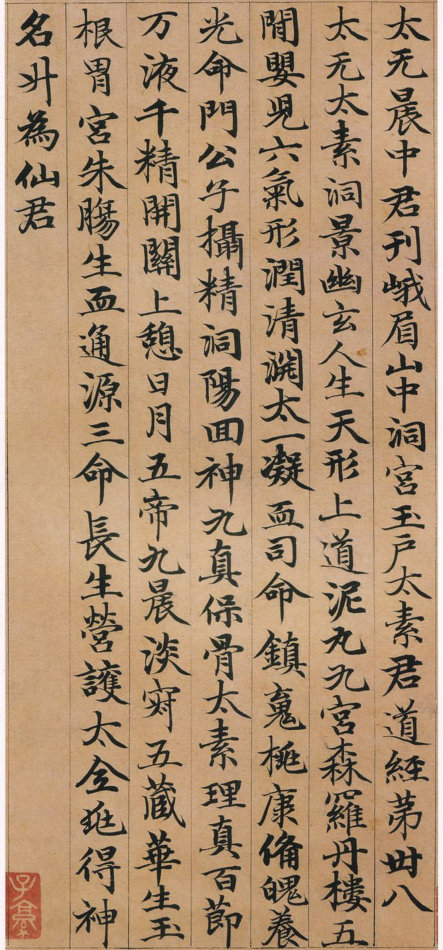 太无晨中君刊峨眉山中洞宮玉戶太素君道經苐卌八
太无太素洞景幽玄人生天形上道泥丸九宮森羅丹樓五
閒嬰兒六氣形潤清淵太一凝血司命鎮䰟桃康俻魄養
光命門公子攝精洞陽回神九真保骨太素理真百節
万液千精開關上憩日月五帝九晨淡五藏華生玉
根胃宮朱腸生血通源三命長生營護太得神
名升為仙君
子京